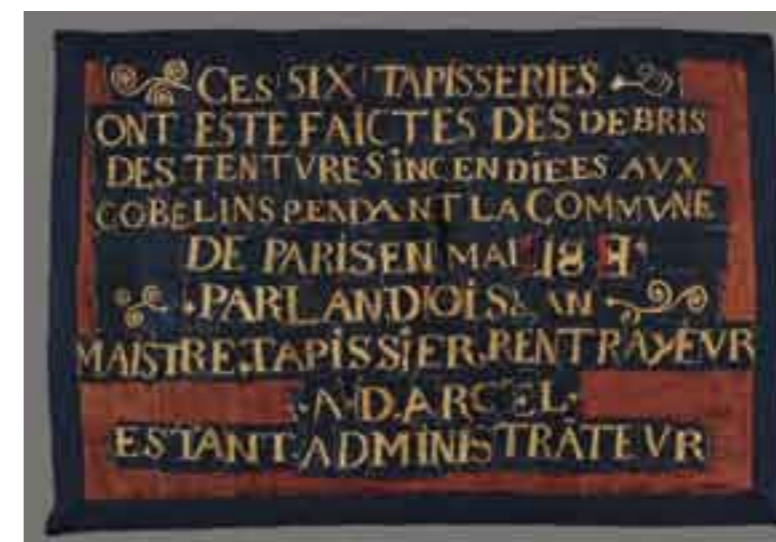 CES SIX TAPISSERIES
ONT ESTE FAICTES DES DEBRIS
DES TENTVRES INCENDIEES AVX
GOBELINS PENDANT LA COMMVNE
DE PARIS EN MAI
PAR
MAISTRE TAPISSIER RENTRAYEVR
A·DARCEL·
ESTANT ADMINISTRATEVR